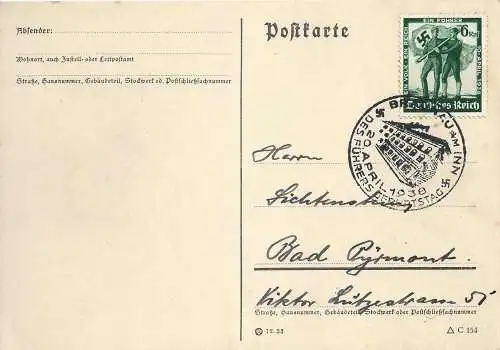 Absender:
Wohnort, auch Zustell- oder Leitpostamt
Straße, Hausnummer, Gebäudeteil, Stockwerk od. Postschließfachnummer
Postkarte
EIN FÜHRER
6
Deutsches Reich
BRAUNAU AM INN
20. APRIL 1938
DES FÜHRERS GEBURTSTAG
Herrn
Bad Pyrmont.
Viktor Lutzestrasse 51
Straße, Hausnummer, Gebäudeteil, Stockwerk oder Postschließfachnummer
C 154